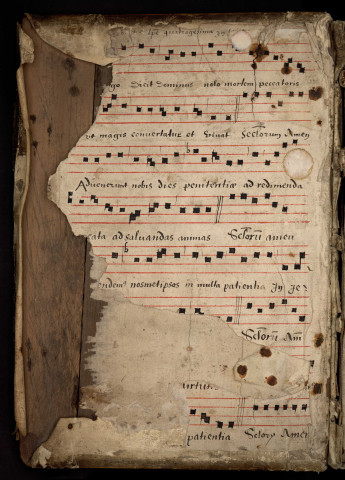 ipo quadragesime
ego dicit Dominus nolo mortem peccatoris
ut magis convertatur et vivat Seclorum Amen
Advenerunt nobis dies penitentiæ ad redimenda
cata ad salvandas animas Seclorũ amen
endemꝰ nosmetipsos in multa patientia Jn je
Seclorũ Am
urtutis
patientia Seclorũ Amen